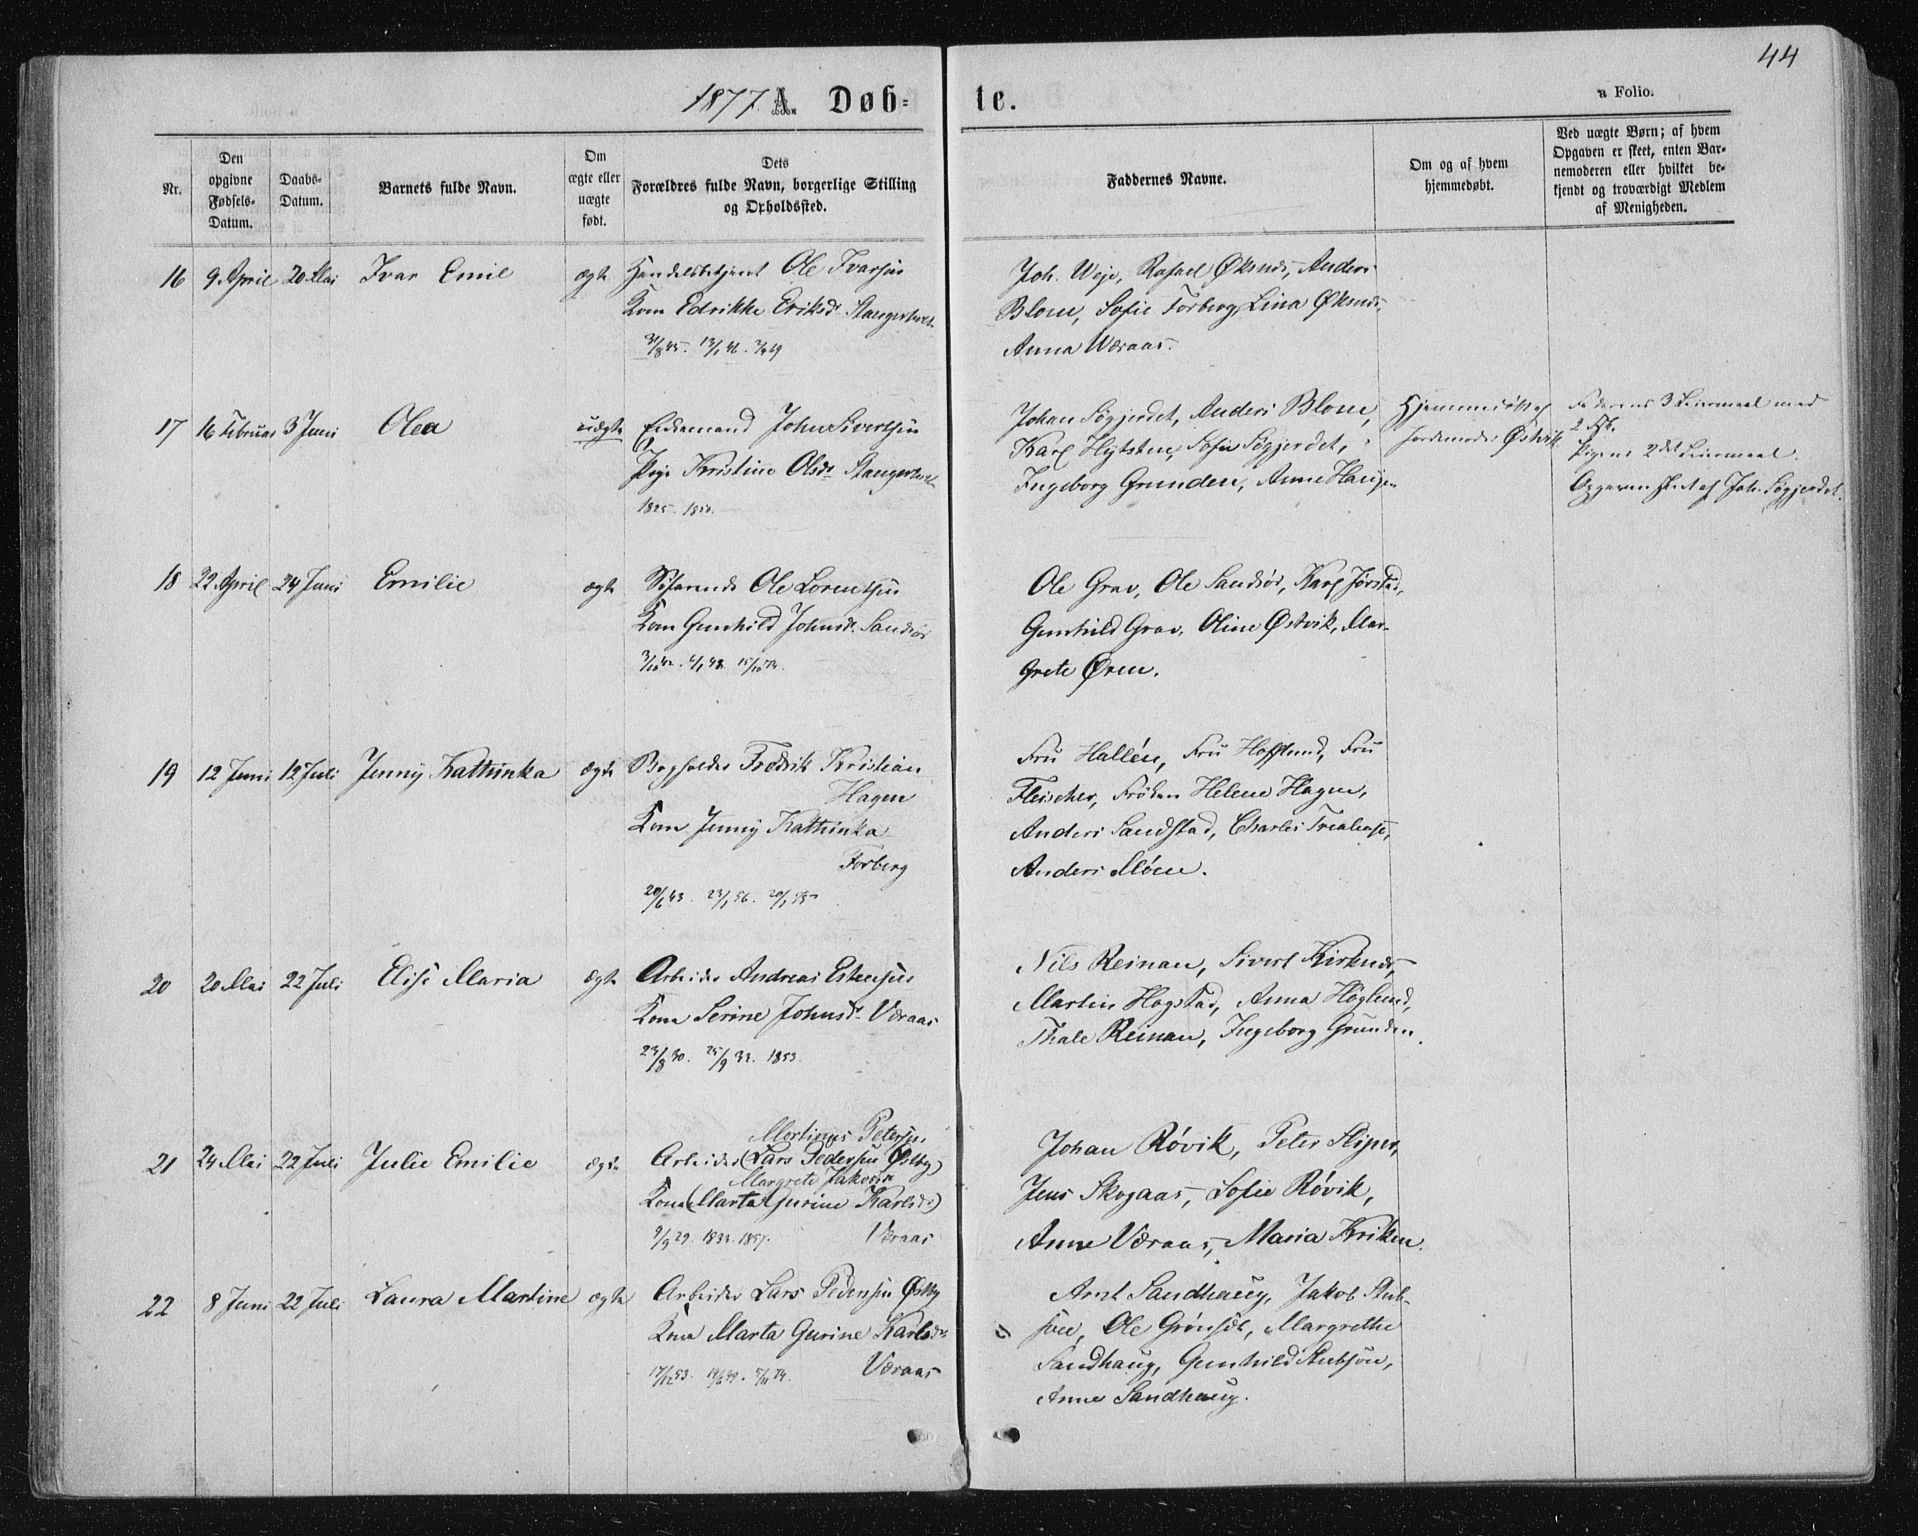 44
1877. A. Døb= te.
a Folio.
Nr.
Den opgivne Fødsels-Datum.
Daabs-Datum.
Barnets fulde Navn.
Om ægte eller uægte født.
Dets Forældres fulde Navn, borgerlige Stilling og Opholdssted.
Faddernes Navne.
Om og af hvem hjemmedøbt.
Ved uægte Børn; af hvem Opgaven er skeet, enten Barnemoderen eller hvilket bekjendt og troværdigt Medlem af Menigheden.
16 9 April 20 Mai Ivar Emil ægte Handelsbetjent Ole Ivarsen
Kone Edrikke Eriksd.
31/8 45. 13/1 46.
Joh. Weje, Rafael Øksnes, Anders
Blom, Sofie Forberg, Lina Øksnes,
Anna Væraas.
17 16 Februar 3 Juni Olea uægte Enkemand John Sivertsen
Pige Kristine Olsdr
1825. 1850.
Johan Søgjerdet, Anders Blom,
Karl Sofie Søgjerdet,
Ingeborg Grunden, Anne Haugen
Hjemmedøbt af
Jordemoder Østvik
Faderens 3 Leiermaal med
2 Fgt.
Pigens 2det Leiermaal.
Opgaven skeet af Joh. Søgjerdet.
18 22 April 24 Juni Emilie ægte Ole Lorentsen
Kone Gunhild Johnsd. Sandsør
15/10 74.
Ole Grav, Ole Sandsør, Karl Jørstad,
Gunhild Grav, Oline Østvik, Mar-
grete Øren.
19 12 Juni 12 Juli Jenny Kathinka ægte Bogholder Fredrik Kristian
Hagen
Kone Jenny Kathinka
Forberg
20/6 43. 23/1 56.
Fru Hallén, Fru Hofflund, Fru
Fleischer, Frøken Helene Hagen,
Anders Sandstad, Charles
Anders Moen.
20 20 Mai 22 Juli Elise Maria ægte Arbeider Andreas Estensen
Kone Serine Johnsd. Væraas
23/8 30. 25/9 33. 1853.
Nils Reinan, Sivert Kirknes,
Martin Hagstad, Anna Høglund,
Thale Reinan, Ingeborg Grunden.
21 24 Mai 22 Juli Julie Emilie ægte
Martinus Petersen
Arbeider (Lars Pedersen Østby)
Margrete Jakobsdr
Kone (Marta Gurine Karlsd.)
9/9 29. 1833. 1857. Væraas
Johan Røvik, Peter Sliper,
Jens Skogaas, Sofie Røvik,
Anne Væraas, Maria Kirken.
22 8 Juni 22 Juli Laura Martine ægte Arbeider Lars Pedersen Østby
Kone Marta Gurine Karlsdr
17/12 53. Væraas
Arnt Sandhaug, Jakob Stub-
søen, Ole Grønset, Margrethe
Sandhaug, Gunhild Stubsøen,
Anne Sandhaug.